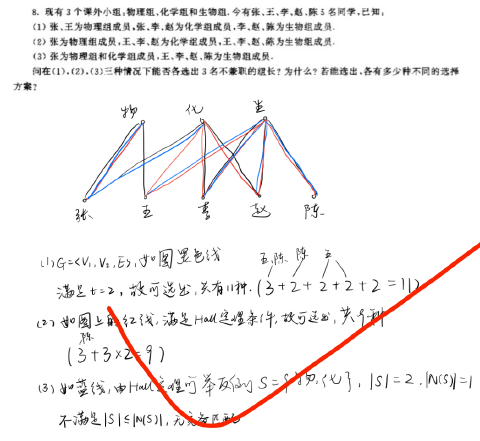 8. 现有3个课外小组:物理组、化学组和生物组.今有张、王、李、赵、陈5名同学.已知:
(1) 张、王为物理组成员,张、李、赵为化学组成员,李、赵、陈为生物组成员.
(2) 张为物理组成员,王、李、赵为化学组成员,王、李、赵、陈为生物组成员.
(3) 张为物理组和化学组成员,王、李、赵、陈为生物组成员.
问在(1),(2),(3)三种情况下能否各选出3名不兼职的组长?为什么?若能选出,各有多少种不同的选择
方案?
物 化 生
张 王 李 赵 陈
(1) G=<V₁,V₂,E>,如图黑色线
王,陈 陈 王
满足t=2,故可选出,共有11种.(3+2+2+2+2=11)
(2) 如图上的红线,满足Hall定理条件,故可选出,共9种
陈
(3+3×2=9)
(3) 如蓝线,由Hall定理可举反例 S={物,化},|S|=2,|N(S)|=1
不满足|S|≤|N(S)|,无完备匹配